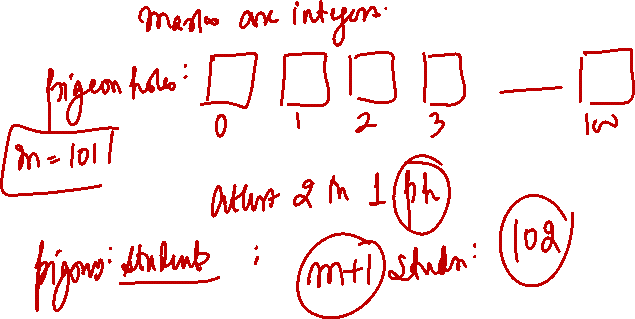 Marks are integers.
pigeon holes:
0 1 2 3 100
m = 101
atleast 2 in 1 ph
pigeons: students ; m+1 students: 102